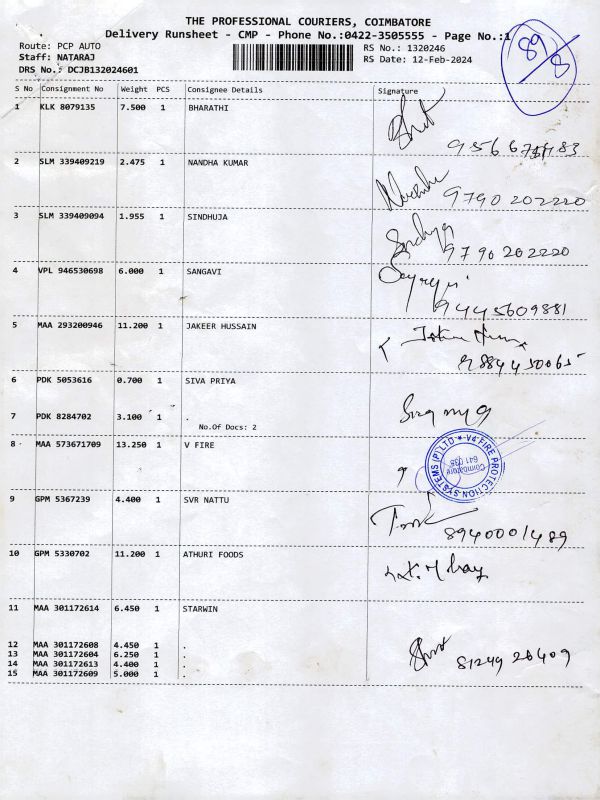 THE PROFESSIONAL COURIERS, COIMBATORE
Delivery Runsheet - CMP - Phone No.:0422-3505555 - Page No.:1
Route: PCP AUTO
RS No.: 1320246
89/8
Staff: NATARAJ
RS Date: 12-Feb-2024
DRS No.: DCJB132024601
S No Consignment No Weight PCS Consignee Details Signature
1 KLK 8079135 7.500 1 BHARATHI
2 SLM 339409219 2.475 1 NANDHA KUMAR
9790 202220
3 SLM 339409094 1.955 1 SINDHUJA
9790 202220
4 VPL 946530698 6.000 1 SANGAVI
9445609881
5 MAA 293200946 11.200 1 JAKEER HUSSAIN
6 PDK 5053616 0.700 1 SIVA PRIYA
7 PDK 8284702 3.100 1 .
No.Of Docs: 2
8 MAA 573671709 13.250 1 V FIRE
V4 FIRE PROTECTION SYSTEMS (P) LTD
Coimbatore
641 038
9 GPM 5367239 4.400 1 SVR NATTU
8940001489
10 GPM 5330702 11.200 1 ATHURI FOODS
11 MAA 301172614 6.450 1 STARWIN
12 MAA 301172608 4.450 1 .
13 MAA 301172604 6.250 1 .
14 MAA 301172613 4.400 1 .
15 MAA 301172609 5.000 1 .
81249 26409